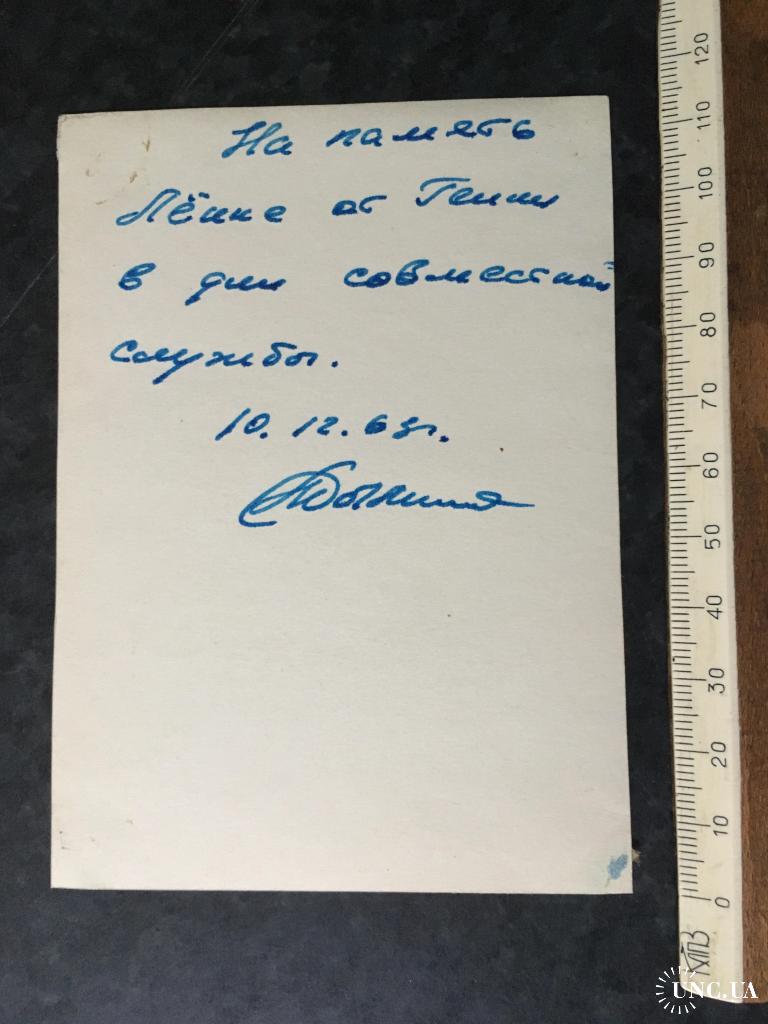 На память
Лёньке от Гены
в дни совместной
службы.
10.12.63г.
120
110
100
90
80
70
60
50
40
30
20
10
0
МПЗ
UNC.UA